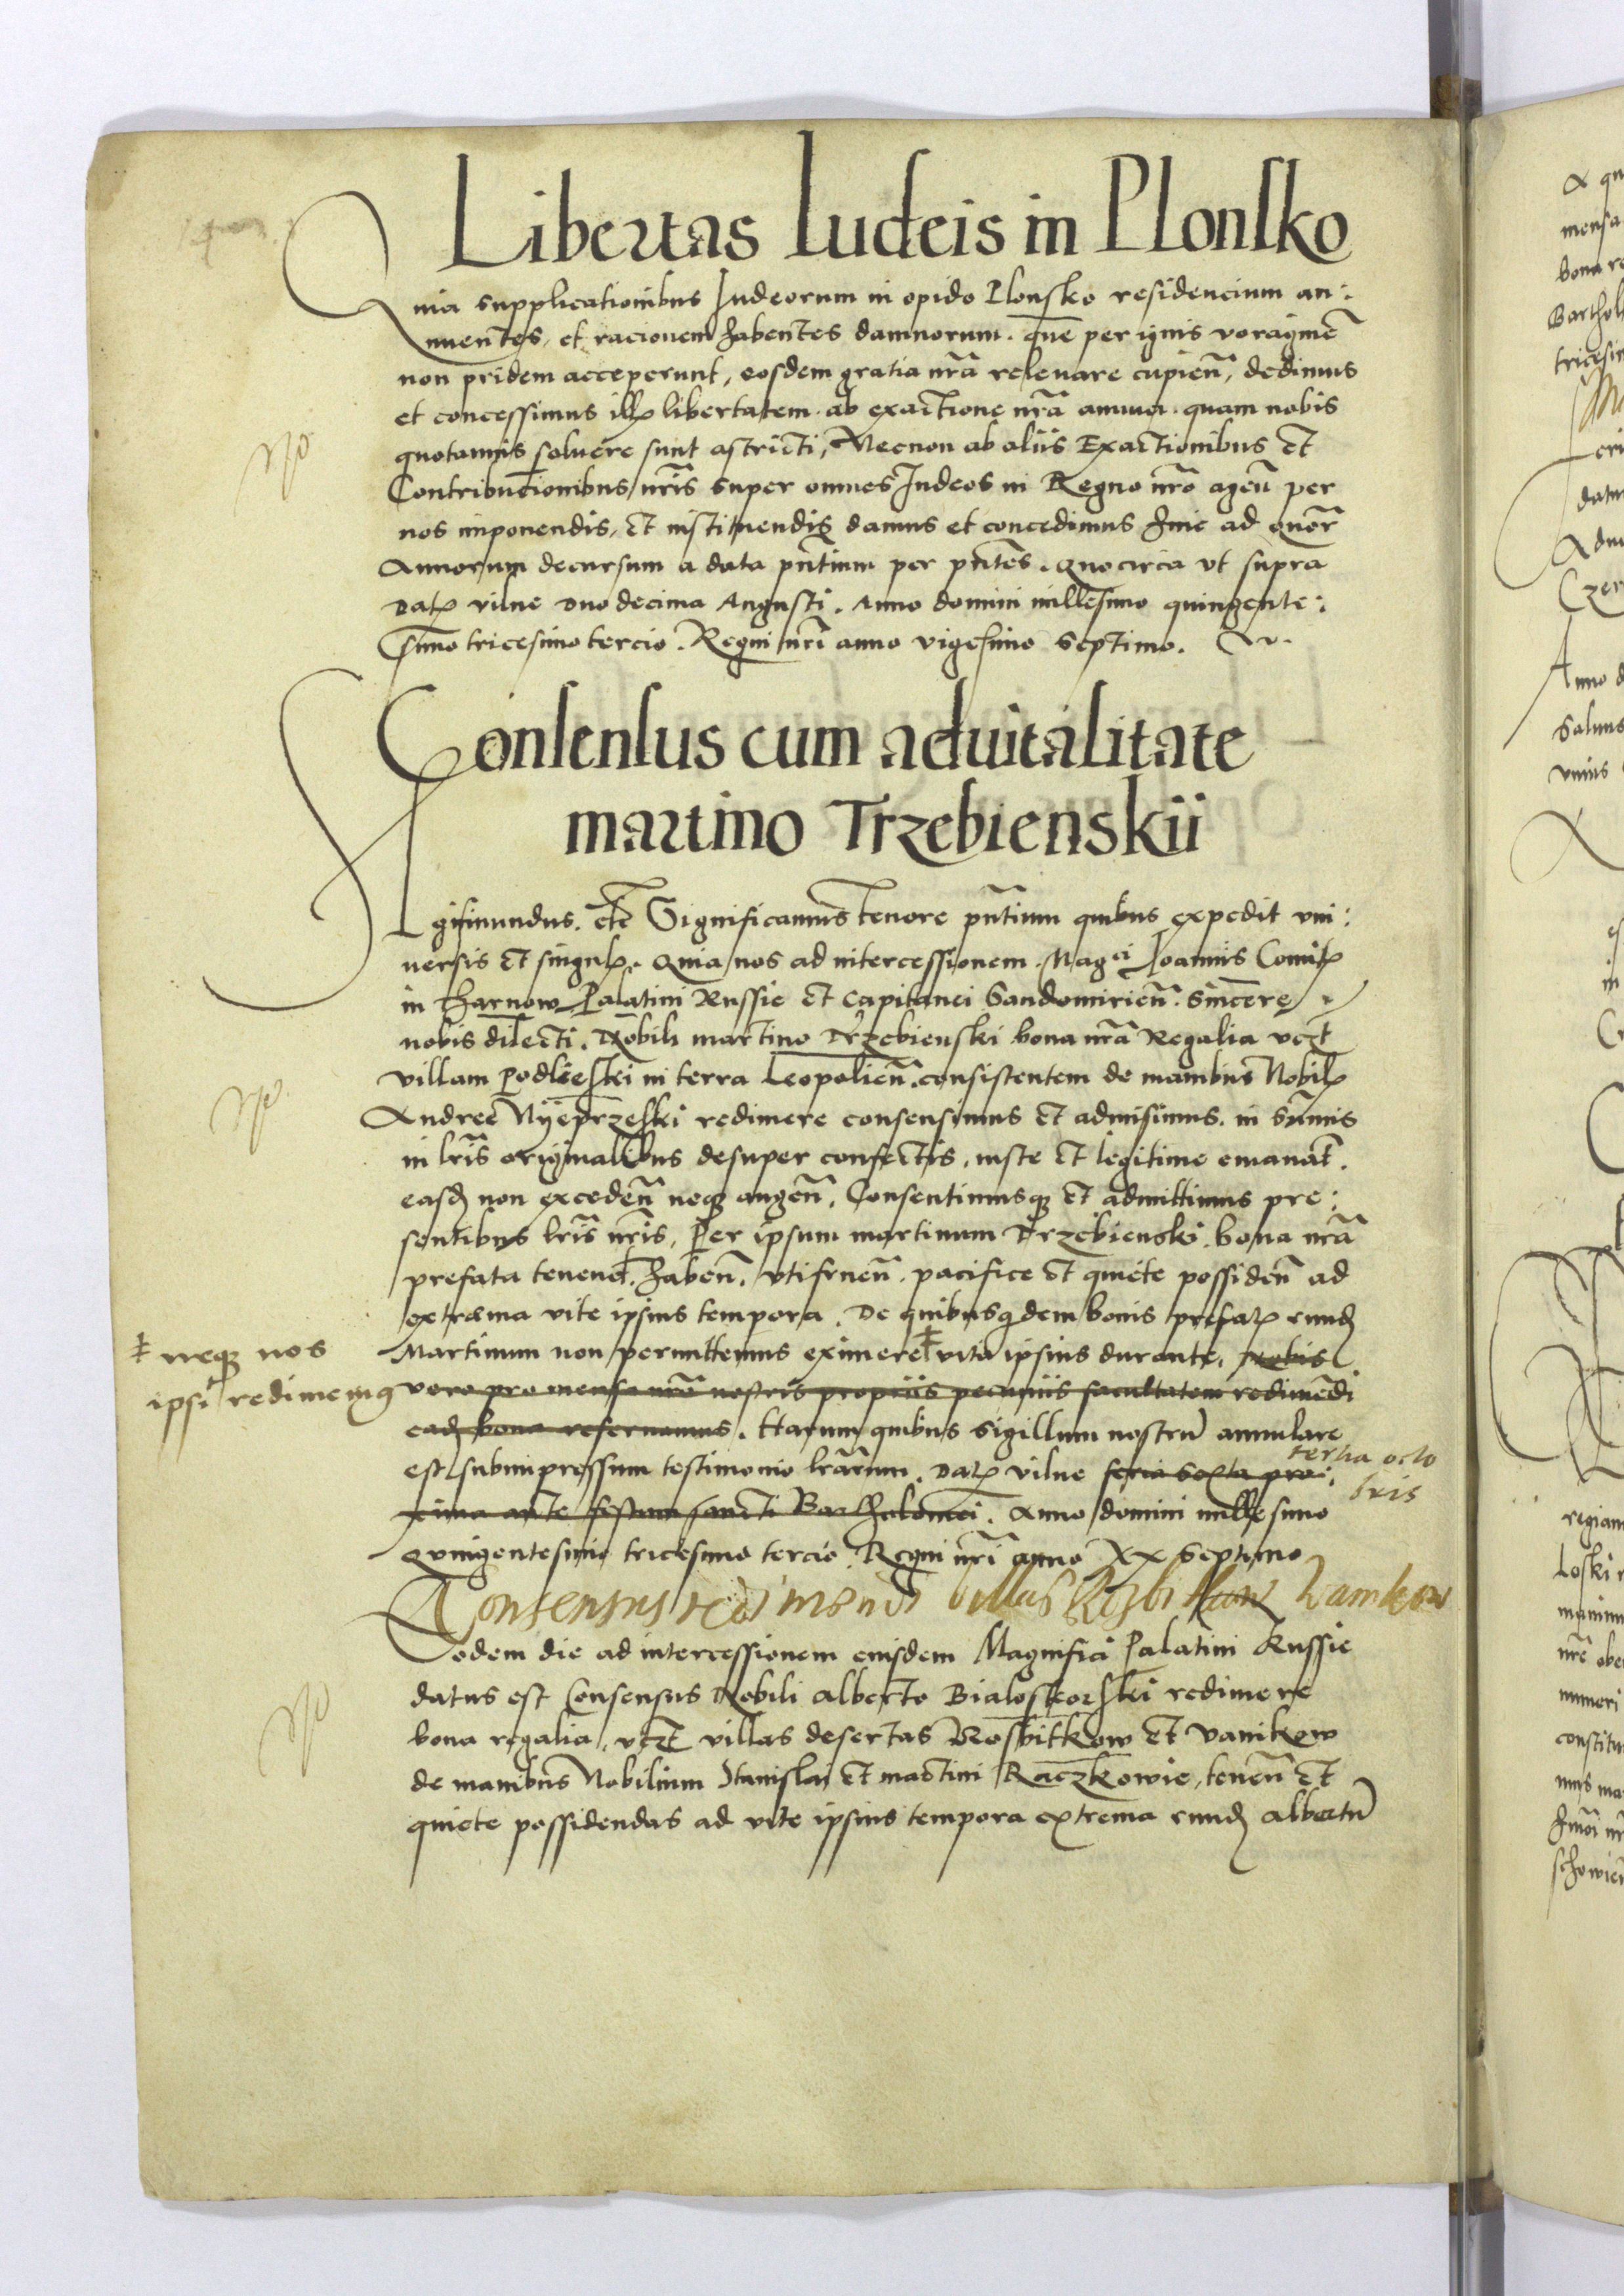 Libertas Iudeis in Plonsko
Quia supplicationibus Iudeorum in opido Plonsko residencium an:
nuentes, et racionem habentes damnorum. que per ignis voraginẽ
non pridem acceperunt, eosdem gratia nrã releuare cupieñ, dedimus
et concessimus illꝭ libertatem ab exactione nrã annua quam nobis
quotannis soluere sunt astricti, Necnon ab aliis Exactionibus et
Contribucionibus nrĩs super omnes Iudeos in Regno nrõ ageñ per
nos imponendis, et instituendis damus et concedimus hinc ad quor̃
Annorum decursum a data pñtium per pñtes. Quocirca vt supra
Datꝭ vilne duodecima Augusti. Anno domini millesimo quingente:
simo tricesimo tercio. Regni nrĩ anno vigesimo septimo.
Consensus cum aduitalitate
martino Trzebienskii
Sigismundus. etc̃ Significamus tenore pñtium quibus expedit vni:
uersis et singulꝭ. Quia nos ad intercessionem Magci Joannis Comitꝭ
in Tharnow Palatini Russie et Capitanei Sandomirieñ. sincere
nobis dilecti. Nobili martino Trzebienski bona nrã Regalia vczt
villam Podlieski in terra Leopolieñ. consistentem de manibus Nobilꝭ
Andree Nyeprzeski redimere consensimus et admisimus. in sum̃is
in lrĩs originalibus desuper confectis, iuste et legitime emanat̃.
easdẽ non excedeñ neqꝫ augeñ. Consentimusqꝫ et admittimus pre:
sentibus lrĩs nrĩs, Per ipsum martinum Trzebienski bona nrã
prefata tenend̃. habeñ. vtifrueñ. pacifice et quiete possideñ ad
extrema vite ipsius tempora. De quibusquidem bonis prefatꝭ eundẽ
Martinum non permittemus eximere ‡ vita ipsius durante. Nobis
‡ neqꝫ nos
ipsi redimemꝰ
vero pro mensa nrã nostris propriis pecuniis facultatem redimẽdi
eadẽ bona reseruamus. Harum quibus sigillum nostrũ annulare
est subimpressum testimonio lrãrum. Datꝭ vilne feria sexta pro:
tertia octo
bris
xima ante festum sancti Bartholomei. Anno domini millesimo
quingentesimo tricesimo tercio. Regni nrĩ anno xx septimo
Consensus redimendi villas
Eodem die ad intercessionem eiusdem Magnifici Palatini Russie
datus est Consensus Nobili alberto Bialoskorski redimere
bona regalia, vczt villas desertas Rosbitkow et vanikow
de manibus Nobilium Stanislai et martini Raczkowie, teneñ et
quiete possidendas ad vite ipsius tempora extrema eundẽ albertũ